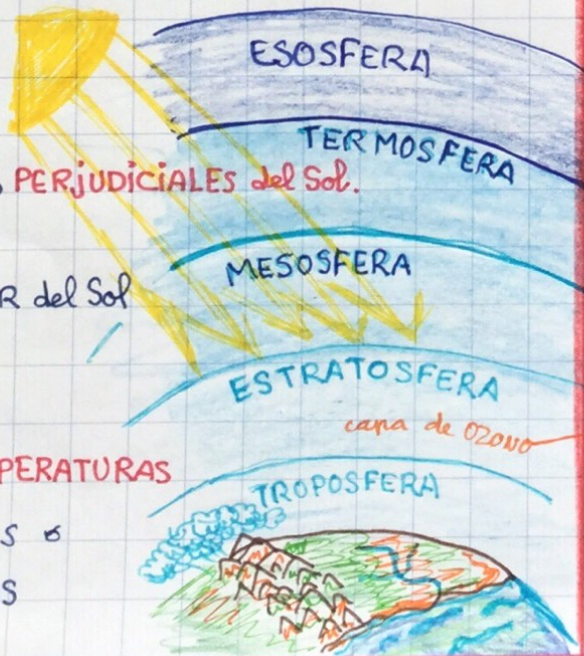 ESOSFERA
TERMOSFERA
PERJUDICIALES del Sol.
MESOSFERA
R del Sol
ESTRATOSFERA
capa de OZONO
PERATURAS
TROPOSFERA
S
S